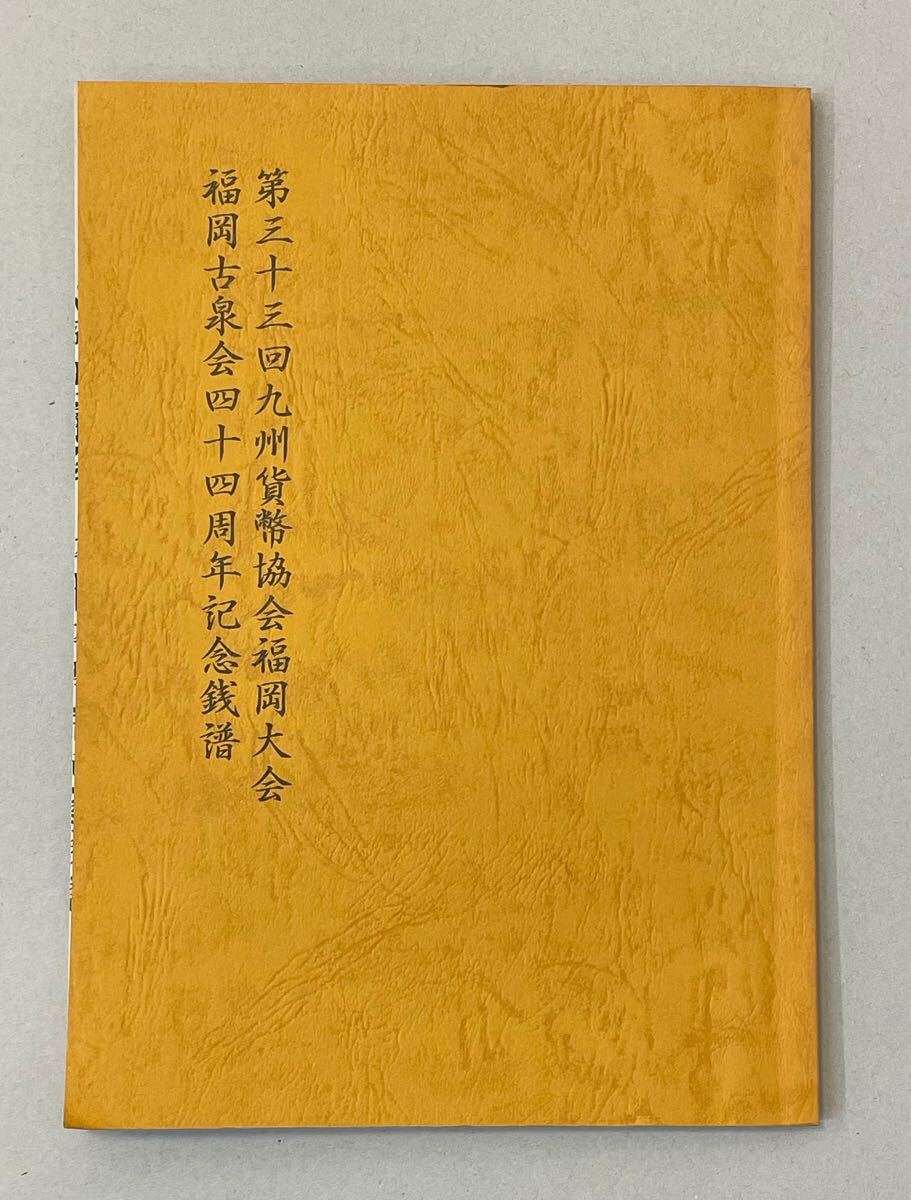 第三十三回九州貨幣協会福岡大会
福岡古泉会四十四周年記念銭譜